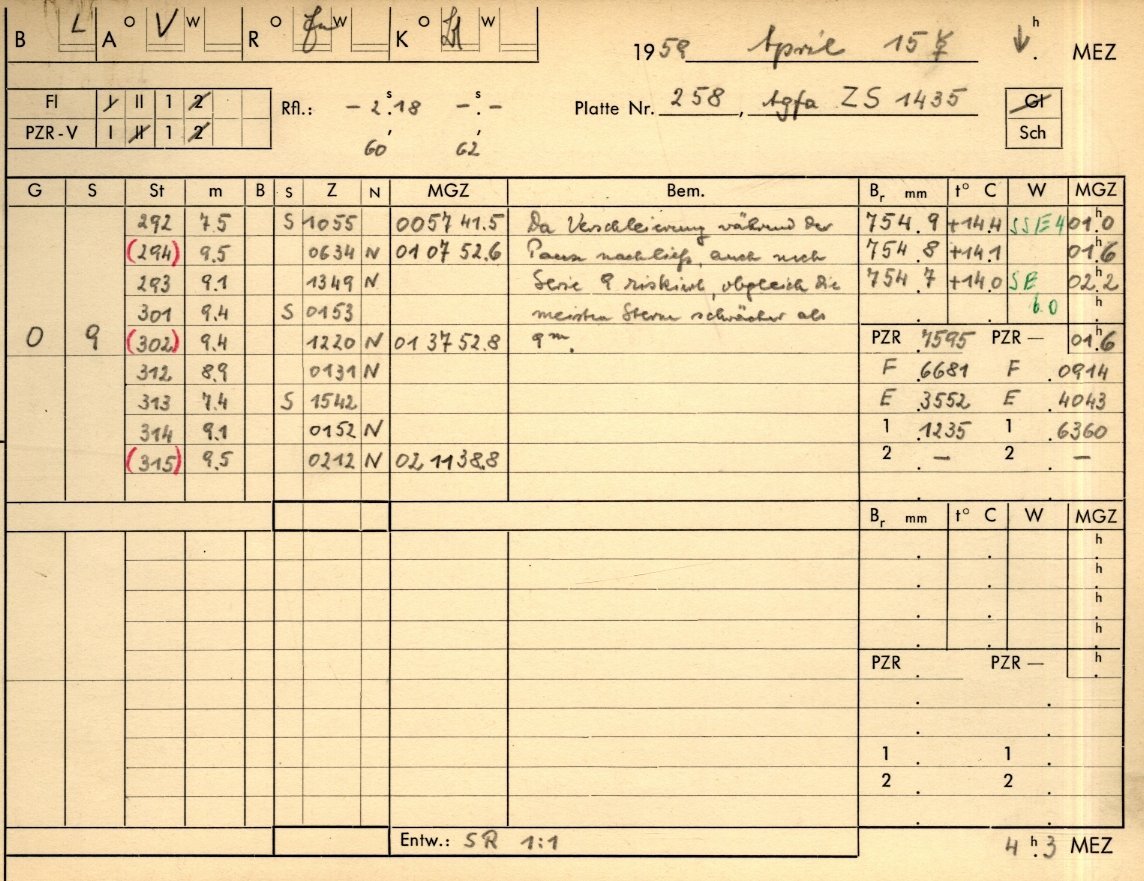 B L A o V w R o w K o w
1959 April 15 h MEZ
Fl I II 1 2
PZR-V I II 1 2
Rfl.: – 2.s18 –.s–
60' 62'
Platte Nr. 258, Agfa ZS 1435
Gl
Sch
G S St m B S Z N MGZ Bem. Br mm t° C W MGZ
292 7.5 S 1055 005741.5 Da Verschleierung während der 754.9 +14.4 SSE 4 01h.0
(294) 9.5 0634 N 010752.6 Pause nachließ, auch noch 754.8 +14.1 01h.6
293 9.1 1349 N Serie 9 riskiert, obgleich die 754.7 +14.0 SE 02h.2
301 9.4 S 0153 meisten Sterne schwächer als 6.0 h.
0 9 (302) 9.4 1220 N 013752.8 9m. PZR .7595 PZR – 01h.6
312 8.9 0131 N F .6681 F .0914
313 7.4 S 1542 E .3552 E .4043
314 9.1 0152 N 1 .1235 1 .6360
(315) 9.5 0212 N 021138.8 2 . – 2 . –
Br mm t° C W MGZ
h
h
h
h
PZR PZR – h
1 . 1 .
2 . 2 .
Entw.: SR 1:1 4h.3 MEZ